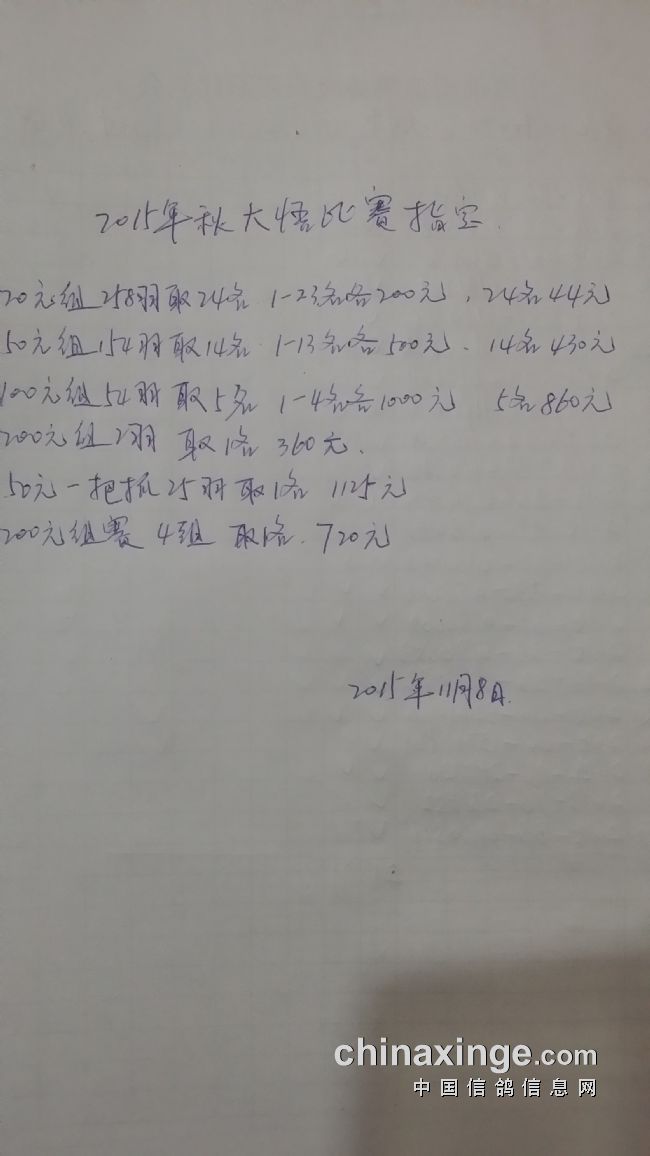 2015年秋大悟比赛指定.
20元组258羽取24名 1-23名各200元, 24名44元
50元组154羽取14名 1-13名各500元. 14名430元
100元组54羽取5名 1-4名各1000元 5名860元
200元组2羽 取1名 360元.
50元一把抓25羽取1名 1125元
200元组赛 4组 取1名. 720元
2015年11月8日.
chinaxinge.com
中国信鸽信息网